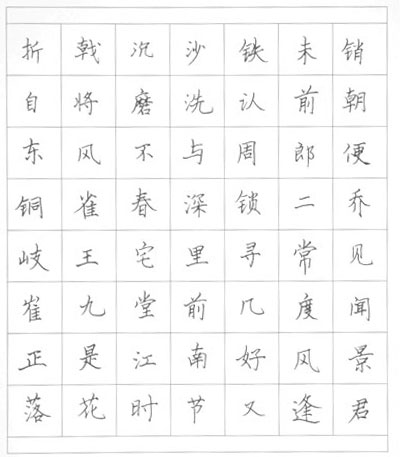 折戟沉沙铁未销
自将磨洗认前朝
东风不与周郎便
铜雀春深锁二乔
岐王宅里寻常见
崔九堂前几度闻
正是江南好风景
落花时节又逢君